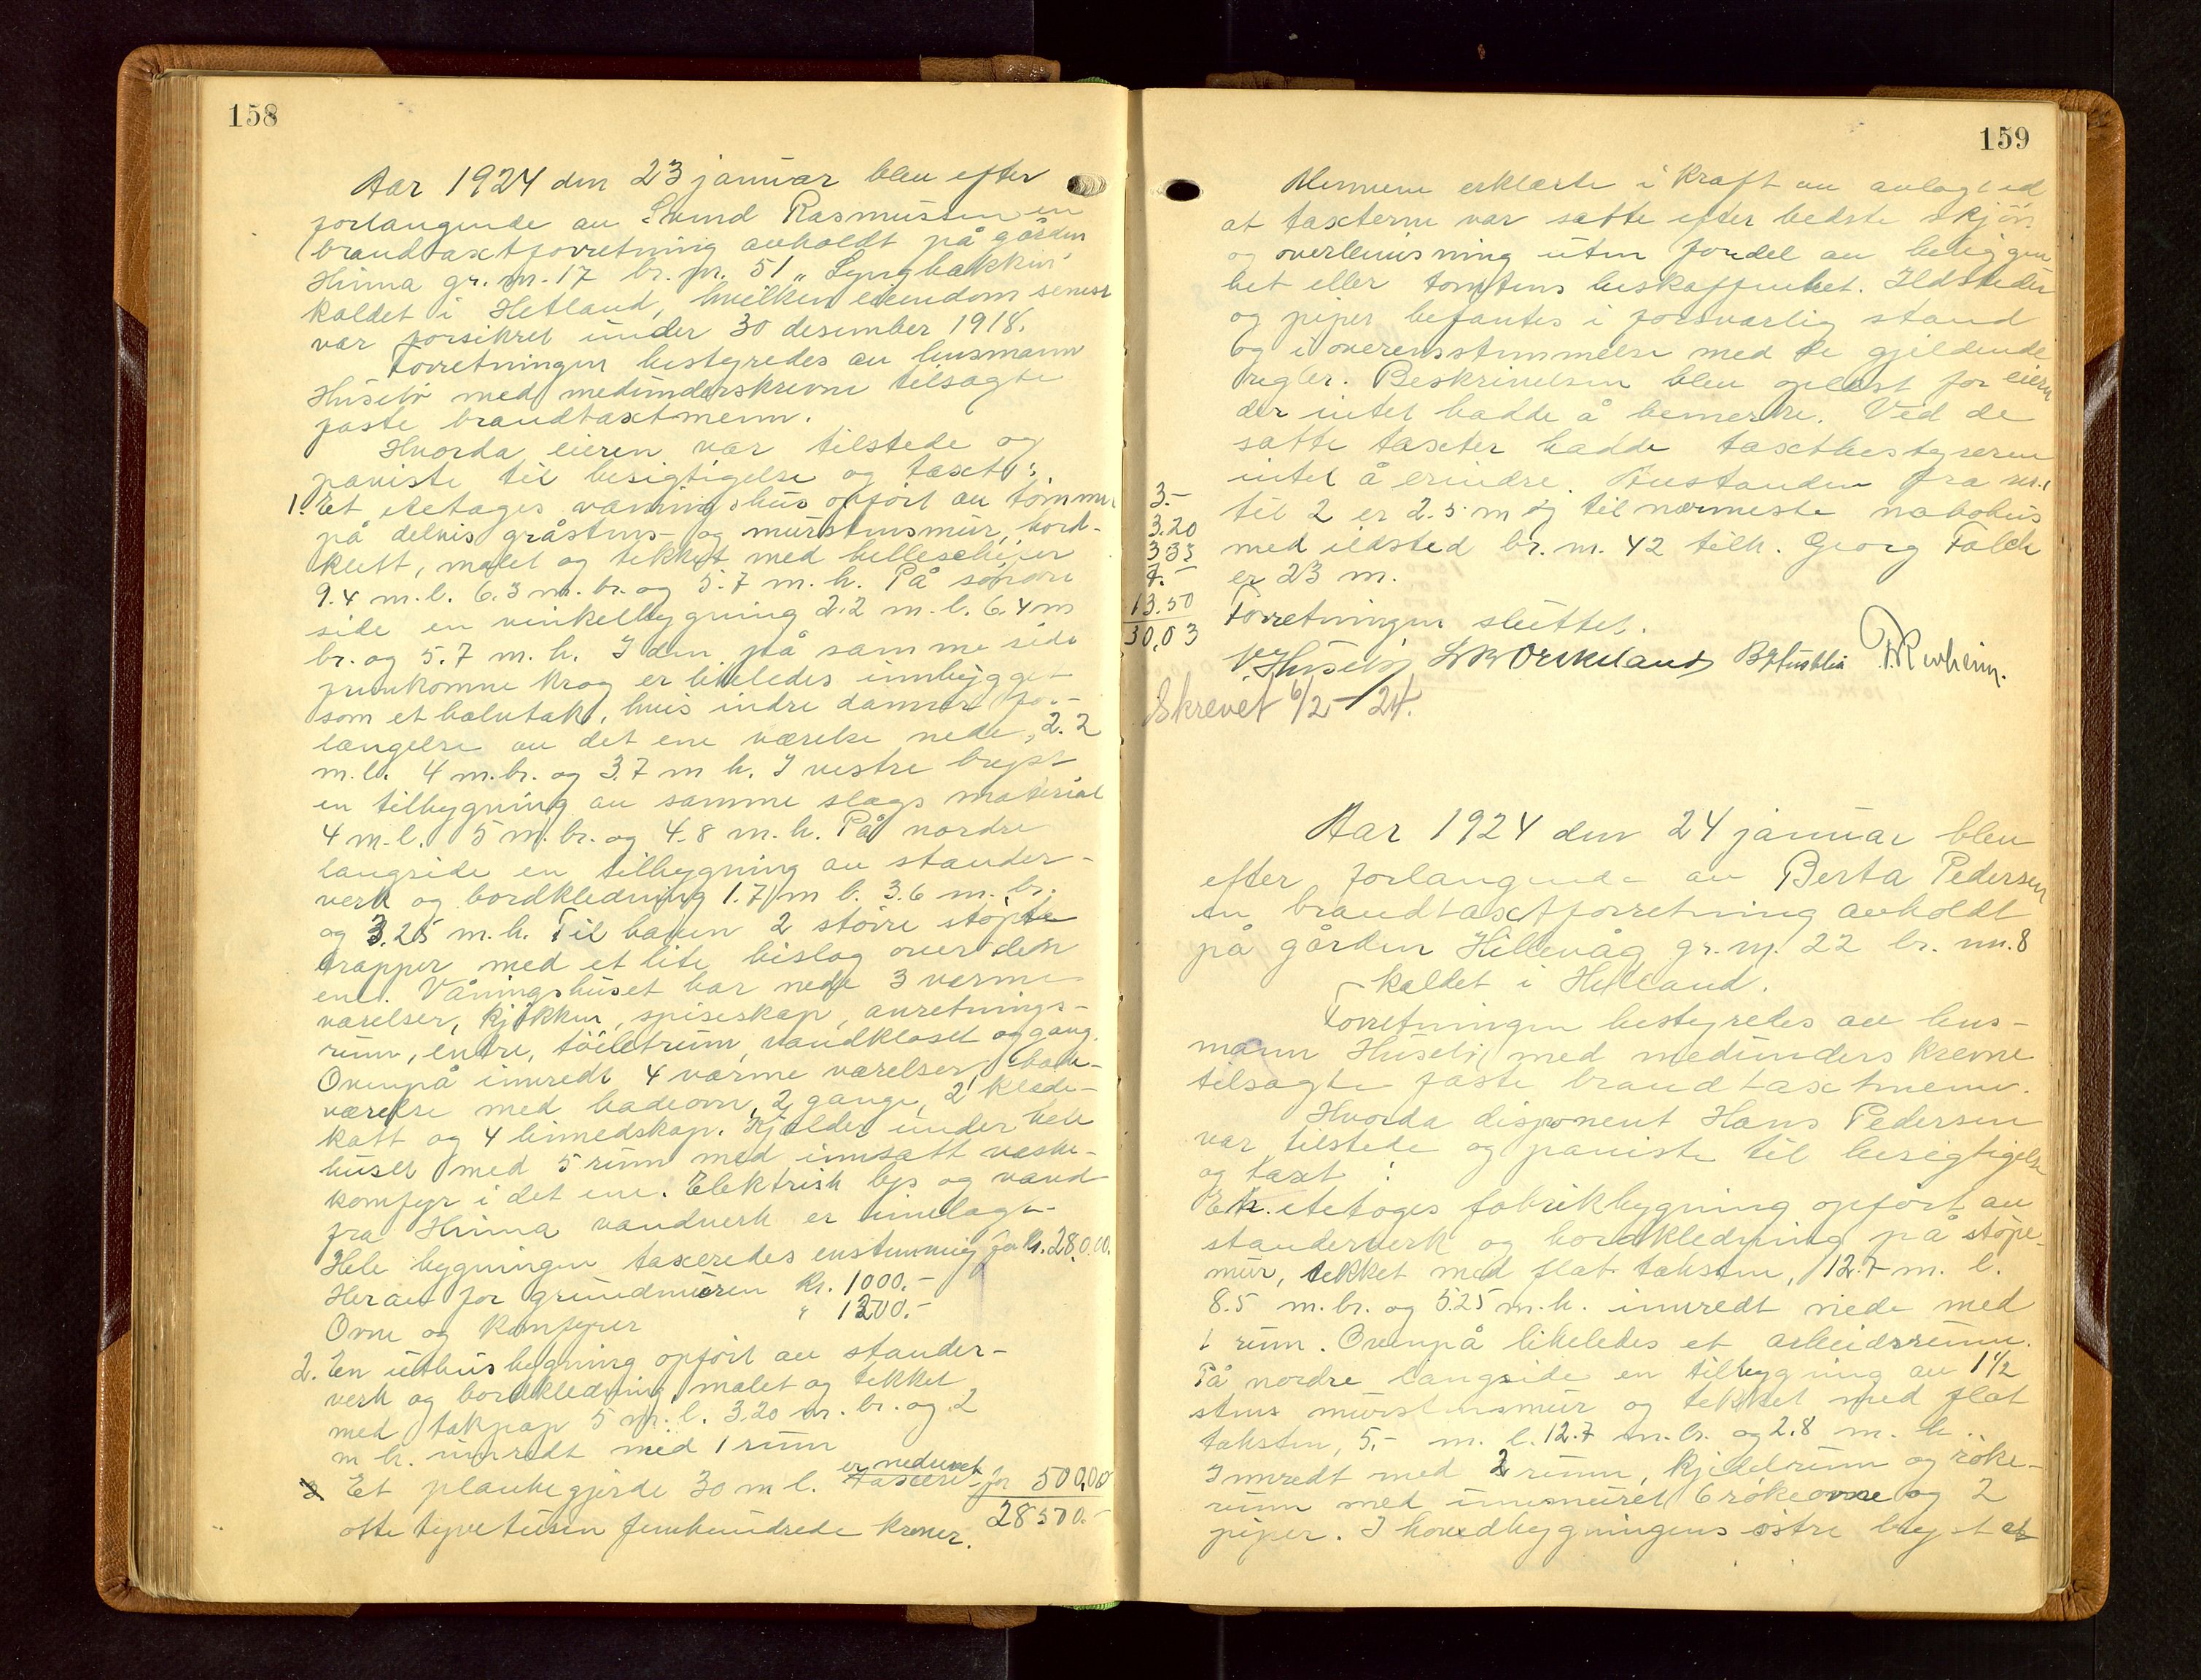 158
Aar 1924 den 23 januar blev efter
forlangende av Svend Rasmussen en
brandtaxtforretning avholdt på gården
Hinna gr. nr. 17 br. nr. 51 „Lyngbakken"
kaldet i Hetland, hvilken eiendom senest
var forsikret under 30 desember 1918.
Forretningen bestyredes av lensmann
Husebø med medunderskrevne tilsagte
faste brandtaxtmenn.
Hvorda eieren var tilstede og
paviste til besigtigelse og taxt:
1. Et etetages våningshus opført av tømmer
på delvis gråstens- og murstensmur, bord-
klett, malet og tekket med helleskifer
9.4 m. l. 6.3 m. br. og 5.7 m. h. På søndre
side en vinkelbygning 2.2 m. l. 6.4 m
br. og 5.7 m. h. I den på samme side
fremkomne krog er likeledes innbygget
som et halvtak, hvis indre danner for-
længelse av det ene værelse nede, 2.2
m. l. 4 m. br. og 3.7 m h. I vestre bryst
en tilbygning av samme slags material
4 m. l. 5 m. br. og 4.8 m. h. På nordre
langside en tilbygning av stander-
verk og bordkledning 1.7 m l. 3.6 m. br.
og 3.25 m. h. Til haven 2 större stöpte
trapper med et lite bislag over den
ene. Våningshuset har nede 3 varme
værelser, kjökken, spiseskap, anretnings-
rum, entre, töiletrum, vandkloset og gang.
Ovenpå innredt 4 varme værelser, bade-
værelse med badeovn, 2 gange, 2 klede-
kott og 4 linnedskap. Kjelder under hele
huset med 5 rum med innsatt vaske-
komfyr i det ene. Elektrisk lys og vand
fra Hinna vandverk er innlagt.
Hele bygningen taxeredes enstemmig for kr. 28,0,00.
Herav for grundmuren kr. 1000.-
Ovne og komfyrer " 1200.-
2. En uthusbygning opført av stander-
verk og bordkledning, malet og tekket
med takpap 5 m. l. 3.20 m. br. og 2
m h. innredt med 1 rum
er nedrevet
3 Et plankegjerde 30 m l. taxeret for 500,00
28500.-
otte tyve tusen femhundrede kroner.
159
Mennene erklærte i kraft av avlagt ed
at taxterne var satte efter bedste skjön
og overbevisning uten fordel av beliggen
het eller tomtens beskaffenhet. Ildsteder
og piper befantes i forsvarlig stand
og i overensstemmelse med de gjeldende
regler. Beskrivelsen blev oplæst for eieren
der intet hadde å bemerke. Ved de
satte taxter hadde taxtbestyreren
intet å erindre. Avstanden fra nr. 1
til 2 er 2.5 m og til nærmeste nabohus
med ildsted br. nr. 42 tilh. Georg Falck
er 23 m.
3.-
3.20
335
7.-
13.50
30,03
Forretningen sluttet.
V. Husebø
Skrevet 6/2 - 24.
Aar 1924 den 24 januar blev
efter forlangende av Berta Pedersen
en brandtaxtforretning avholdt
på gården Hillevåg gr. nr. 22 br. nr. 8
kaldet i Hetland.
Forretningen bestyredes av lens-
mann Husebø med medunderskrevne
tilsagte faste brandtaxtmenn.
Hvorda disponent Hans Pedersen
var tilstede og paviste til besigtigelse
og taxt:
En etetages fabrikbygning opført av
standerverk og bordkledning på støpe-
mur, tekket med flat taksten, 12.7 m. l.
8.5 m. br. og 5.25 m. h. innredt nede med
1 rum. Ovenpå likeledes et arbeidsrum.
På nordre langside en tilbygning av 1 1/2
stens murstensmur og tekket med flat
taksten, 5.- m. l. 12.7 m. br. og 2.8 m. h..
Innredt med 2 rum, kjedelrum og röke-
rum med innmuret 6 rökeovne og 2
piper. I hovedbygningens östre bryst et